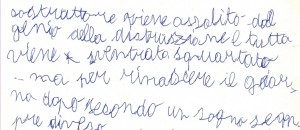 sostrattore viene assalito dal
genio della distruzione e tutta
viene sventrata squartata
... ma per rinascere il gior,
no dopo secondo un sogno sem,
pre diverso